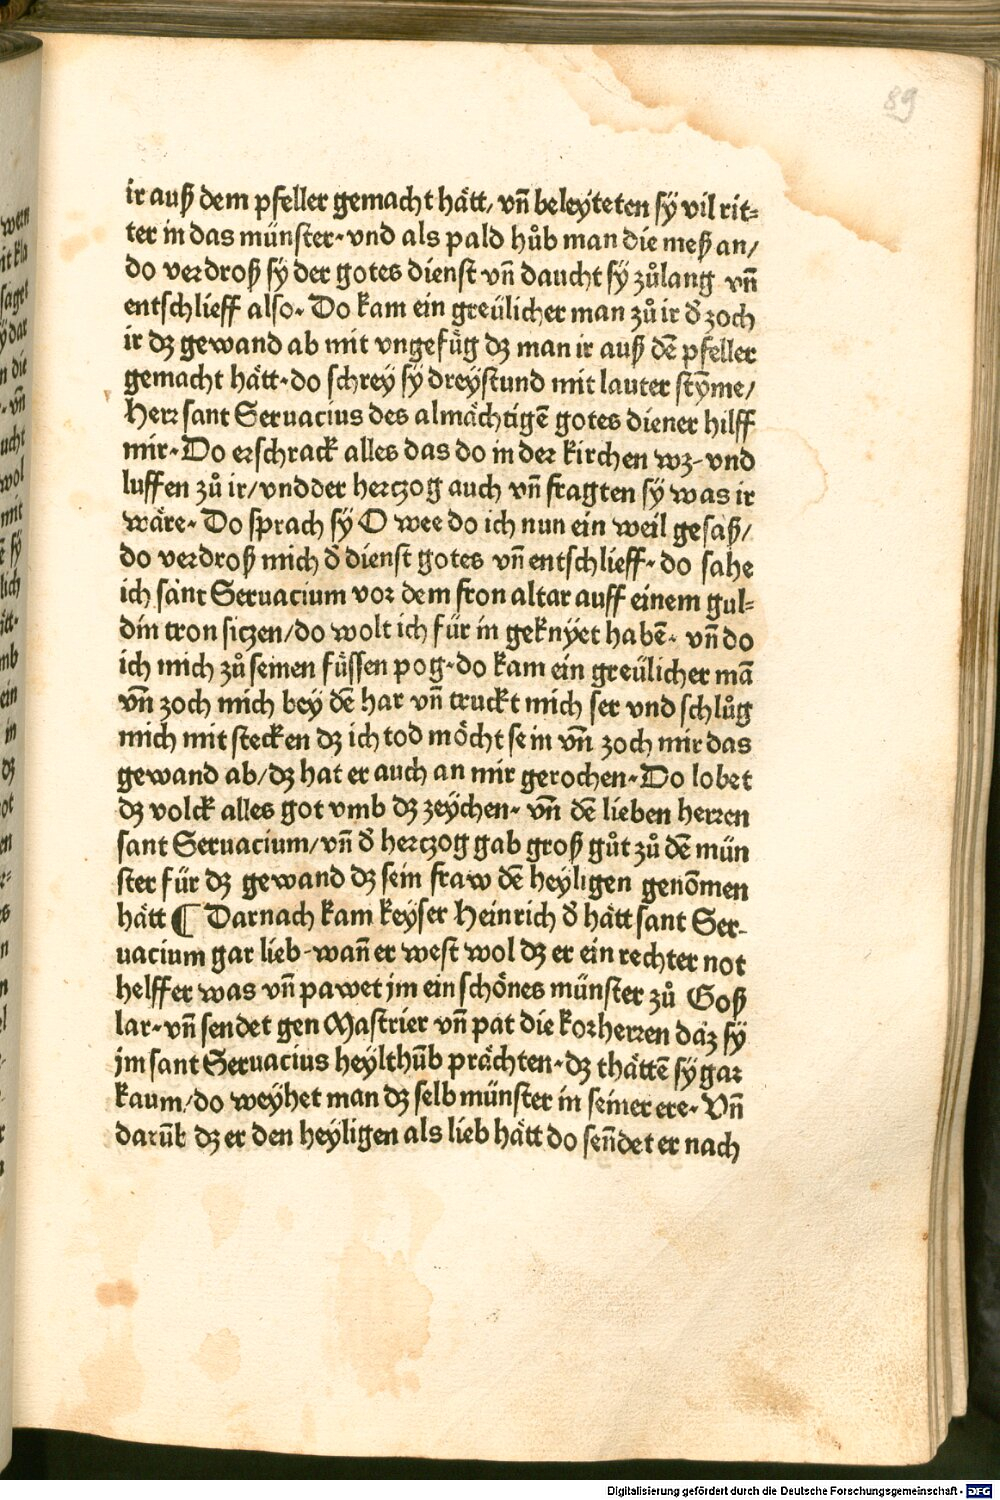 89
ir auß dem pfeller gemacht hätt/ vñ beleyteten sÿ vil rit⸗
ter in das münster· vnd als pald hůb man die meß an/
do verdroß sÿ der gotes dienst vñ daucht sÿ zůlang vñ
entschlieff also· Do kam ein greülicher man zů ir d̕ zoch
ir dz gewand ab mit vngefůg dz man ir auß dē pfeller
gemacht hätt· do schrey sÿ dreÿstund mit lauter stÿme/
Herr sant Seruacius des almächtigē gotes diener hilff
mir· Do erschrack alles das do in der kirchen wz· vnd
luffen zů ir/ vnd der hertzog auch vñ fragten sÿ was ir
wäre· Do sprach sÿ O wee do ich nun ein weil gesaß/
do verdroß mich d̕ dienst gotes vñ entschlieff· do sahe
ich sant Seruacium vor dem fron altar auff einem gul⸗
din tron sitzen/ do wolt ich für in geknÿet habē· vñ do
ich mich zů seinen füssen pog· do kam ein greülicher mā
vñ zoch mich bey dē har vñ truckt mich ser vnd schlůg
mich mit stecken dz ich tod möcht sein vñ zoch mir das
gewand ab/ dz hat er auch an mir gerochen· Do lobet
dz volck alles got vmb dz zeÿchen· vñ dē lieben herren
sant Seruacium/ vñ d̕ hertzog gab groß gůt zů dē mün
ster für dz gewand dz sein fraw dē heyligen genōmen
hätt ¶ Darnach kam keyser Heinrich d̕ hätt sant Ser⸗
uacium gar lieb· wañ er west wol dz er ein rechter not
helffer was vñ pawet jm ein schönes münster zů Goß
lar· vñ sendet gen Mastrier vñ pat die korherren daz sÿ
jm sant Seruacius heylthūb prächten· dz thättē sÿ gar
kaum/ do weyhet man dz selb münster in seiner ere· Vñ
darūb dz er den heyligen als lieb hätt do señdet er nach
Digitalisierung gefördert durch die Deutsche Forschungsgemeinschaft - DFG